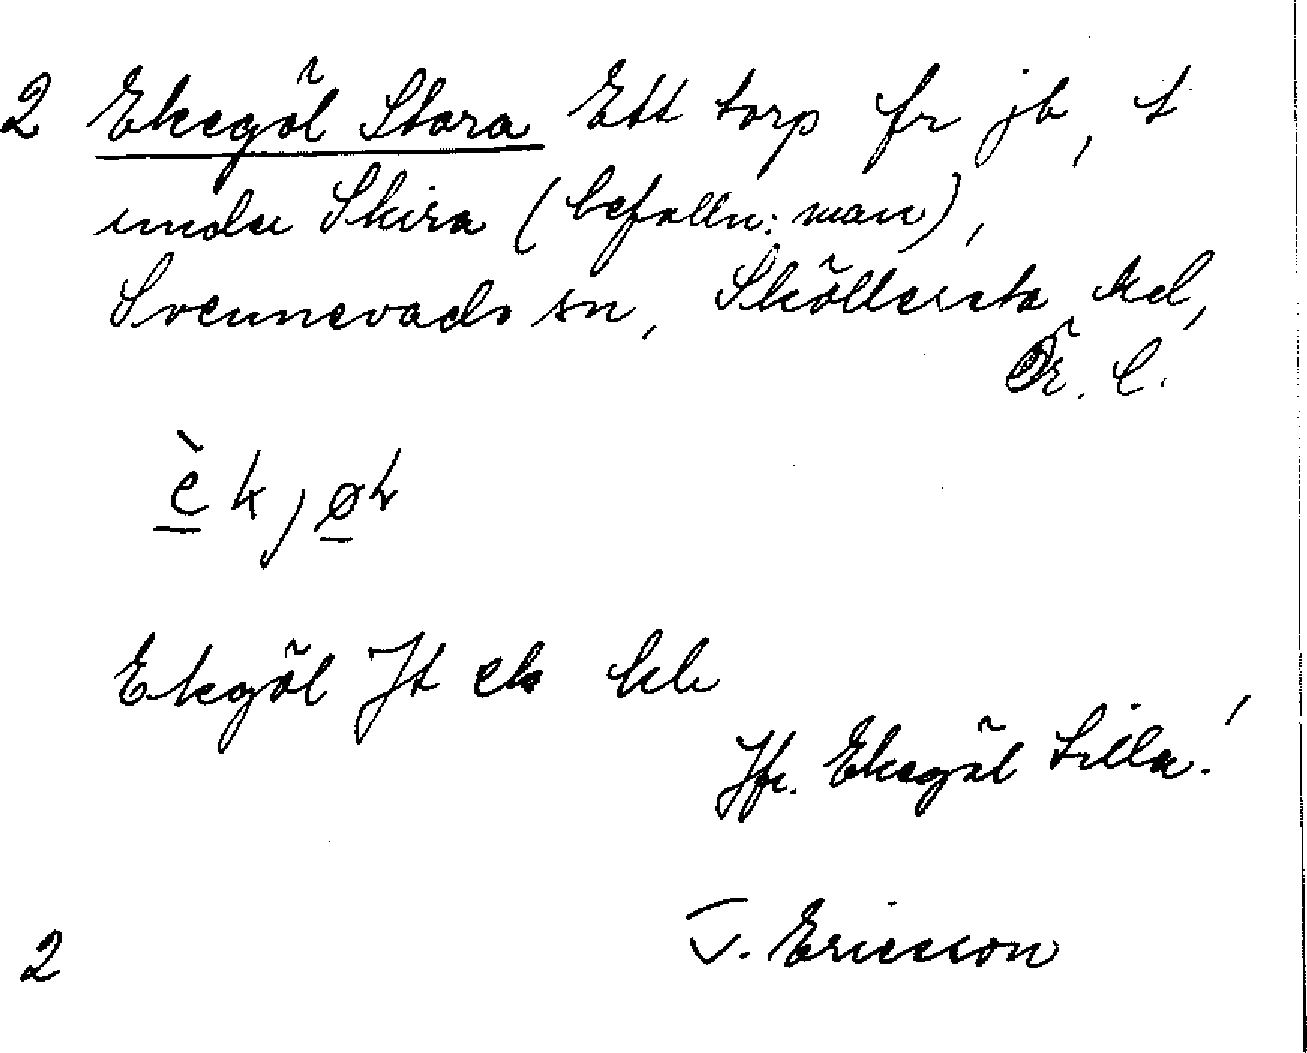 2 Ekegöl Stora Ett torp fr jb, t
under Skira (befolln: man),
Svennevads sn, Sköllersta hd,
Ör. l.
Ekgöl Jt ek
Jfr. Ekegöl Lilla!
T. Ericsson
2